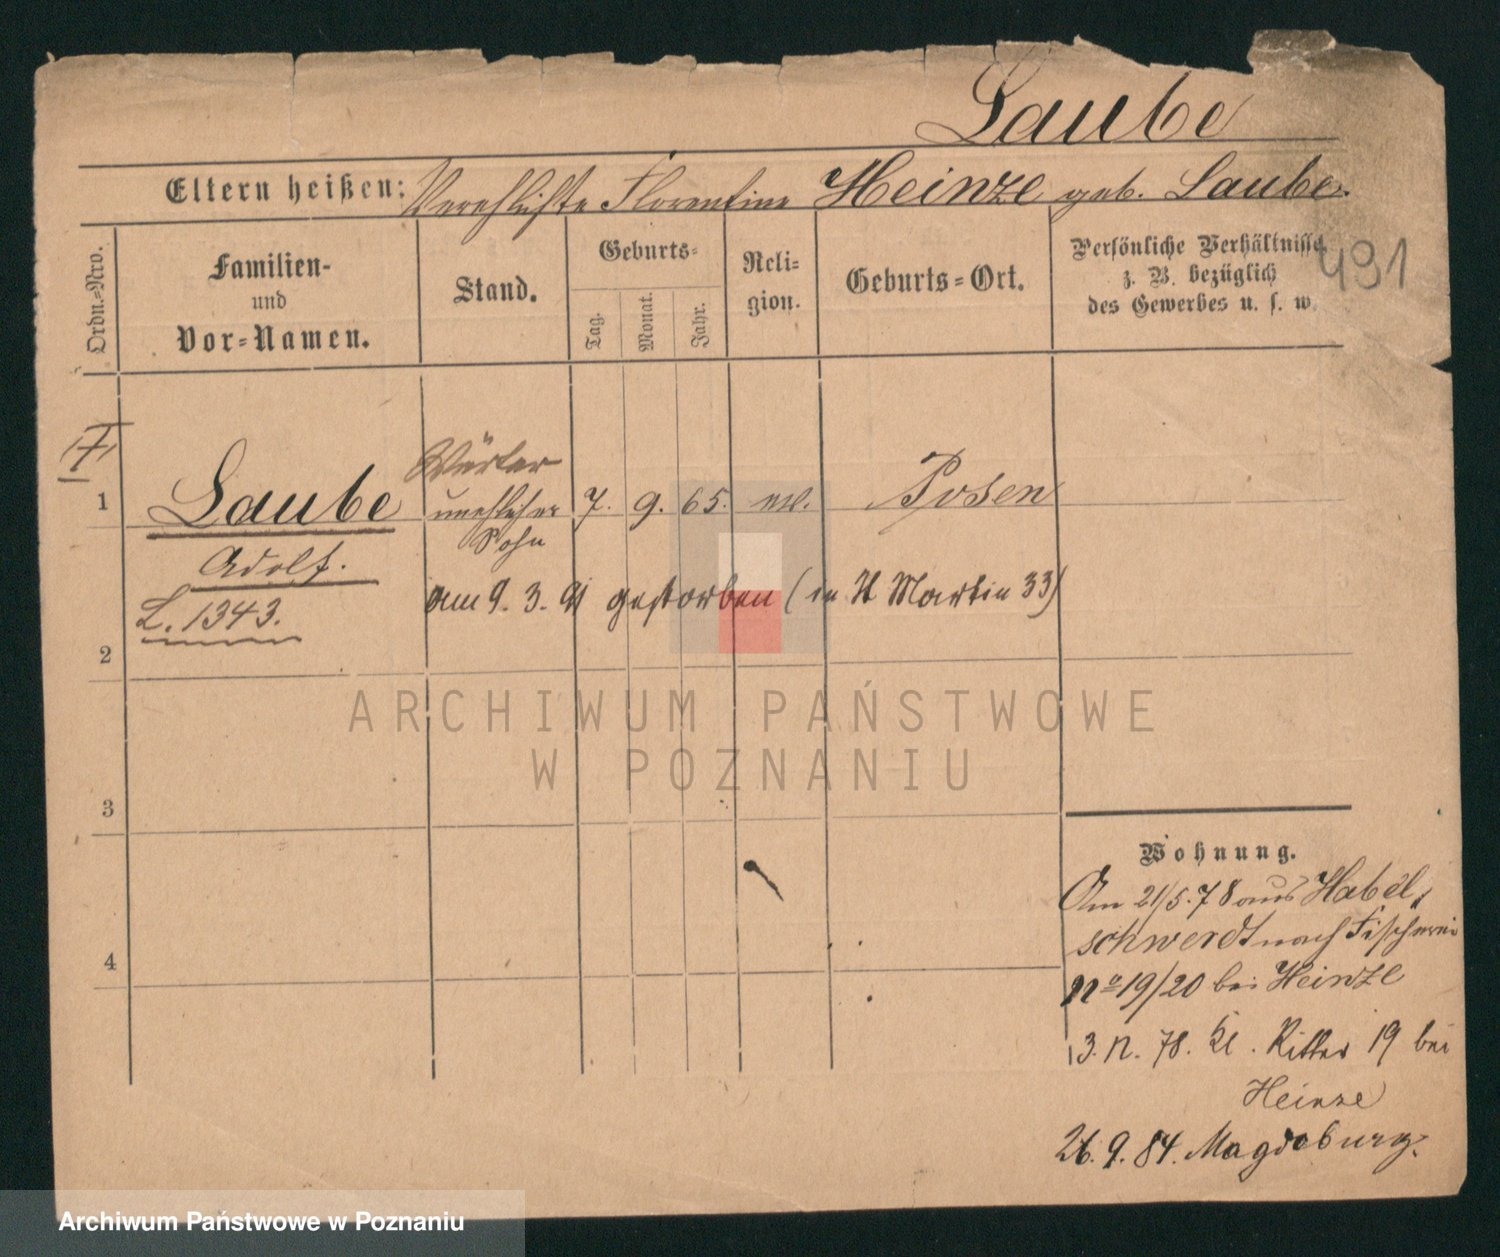 Laube
Eltern heißen: Verehlichte Florentine Heinze geb. Laube.
491
Ordn.-Nro.
Familien-
und
Vor-Namen.
Stand.
Geburts-
Tag.
Monat.
Jahr.
Reli-
gion.
Geburts-Ort.
Persönliche Verhältnisse
z. B. bezüglich
des Gewerbes u. s. w.
1
Laube
Adolf.
L. 1343.
Wärter
unehlicher
Sohn
7. 9. 65.
Posen
am 9. 3. 91 gestorben (in St Martin 33)
2
3
4
ARCHIWUM PAŃSTWOWE
W POZNANIU
Wohnung.
Am 21/5.78 aus Habel-
schwerdt nach Fischerei
No 19/20 bei Heinze
Kl. Ritter 19 bei
Heinze
26. 9. 84. Magdeburg.
Archiwum Państwowe w Poznaniu